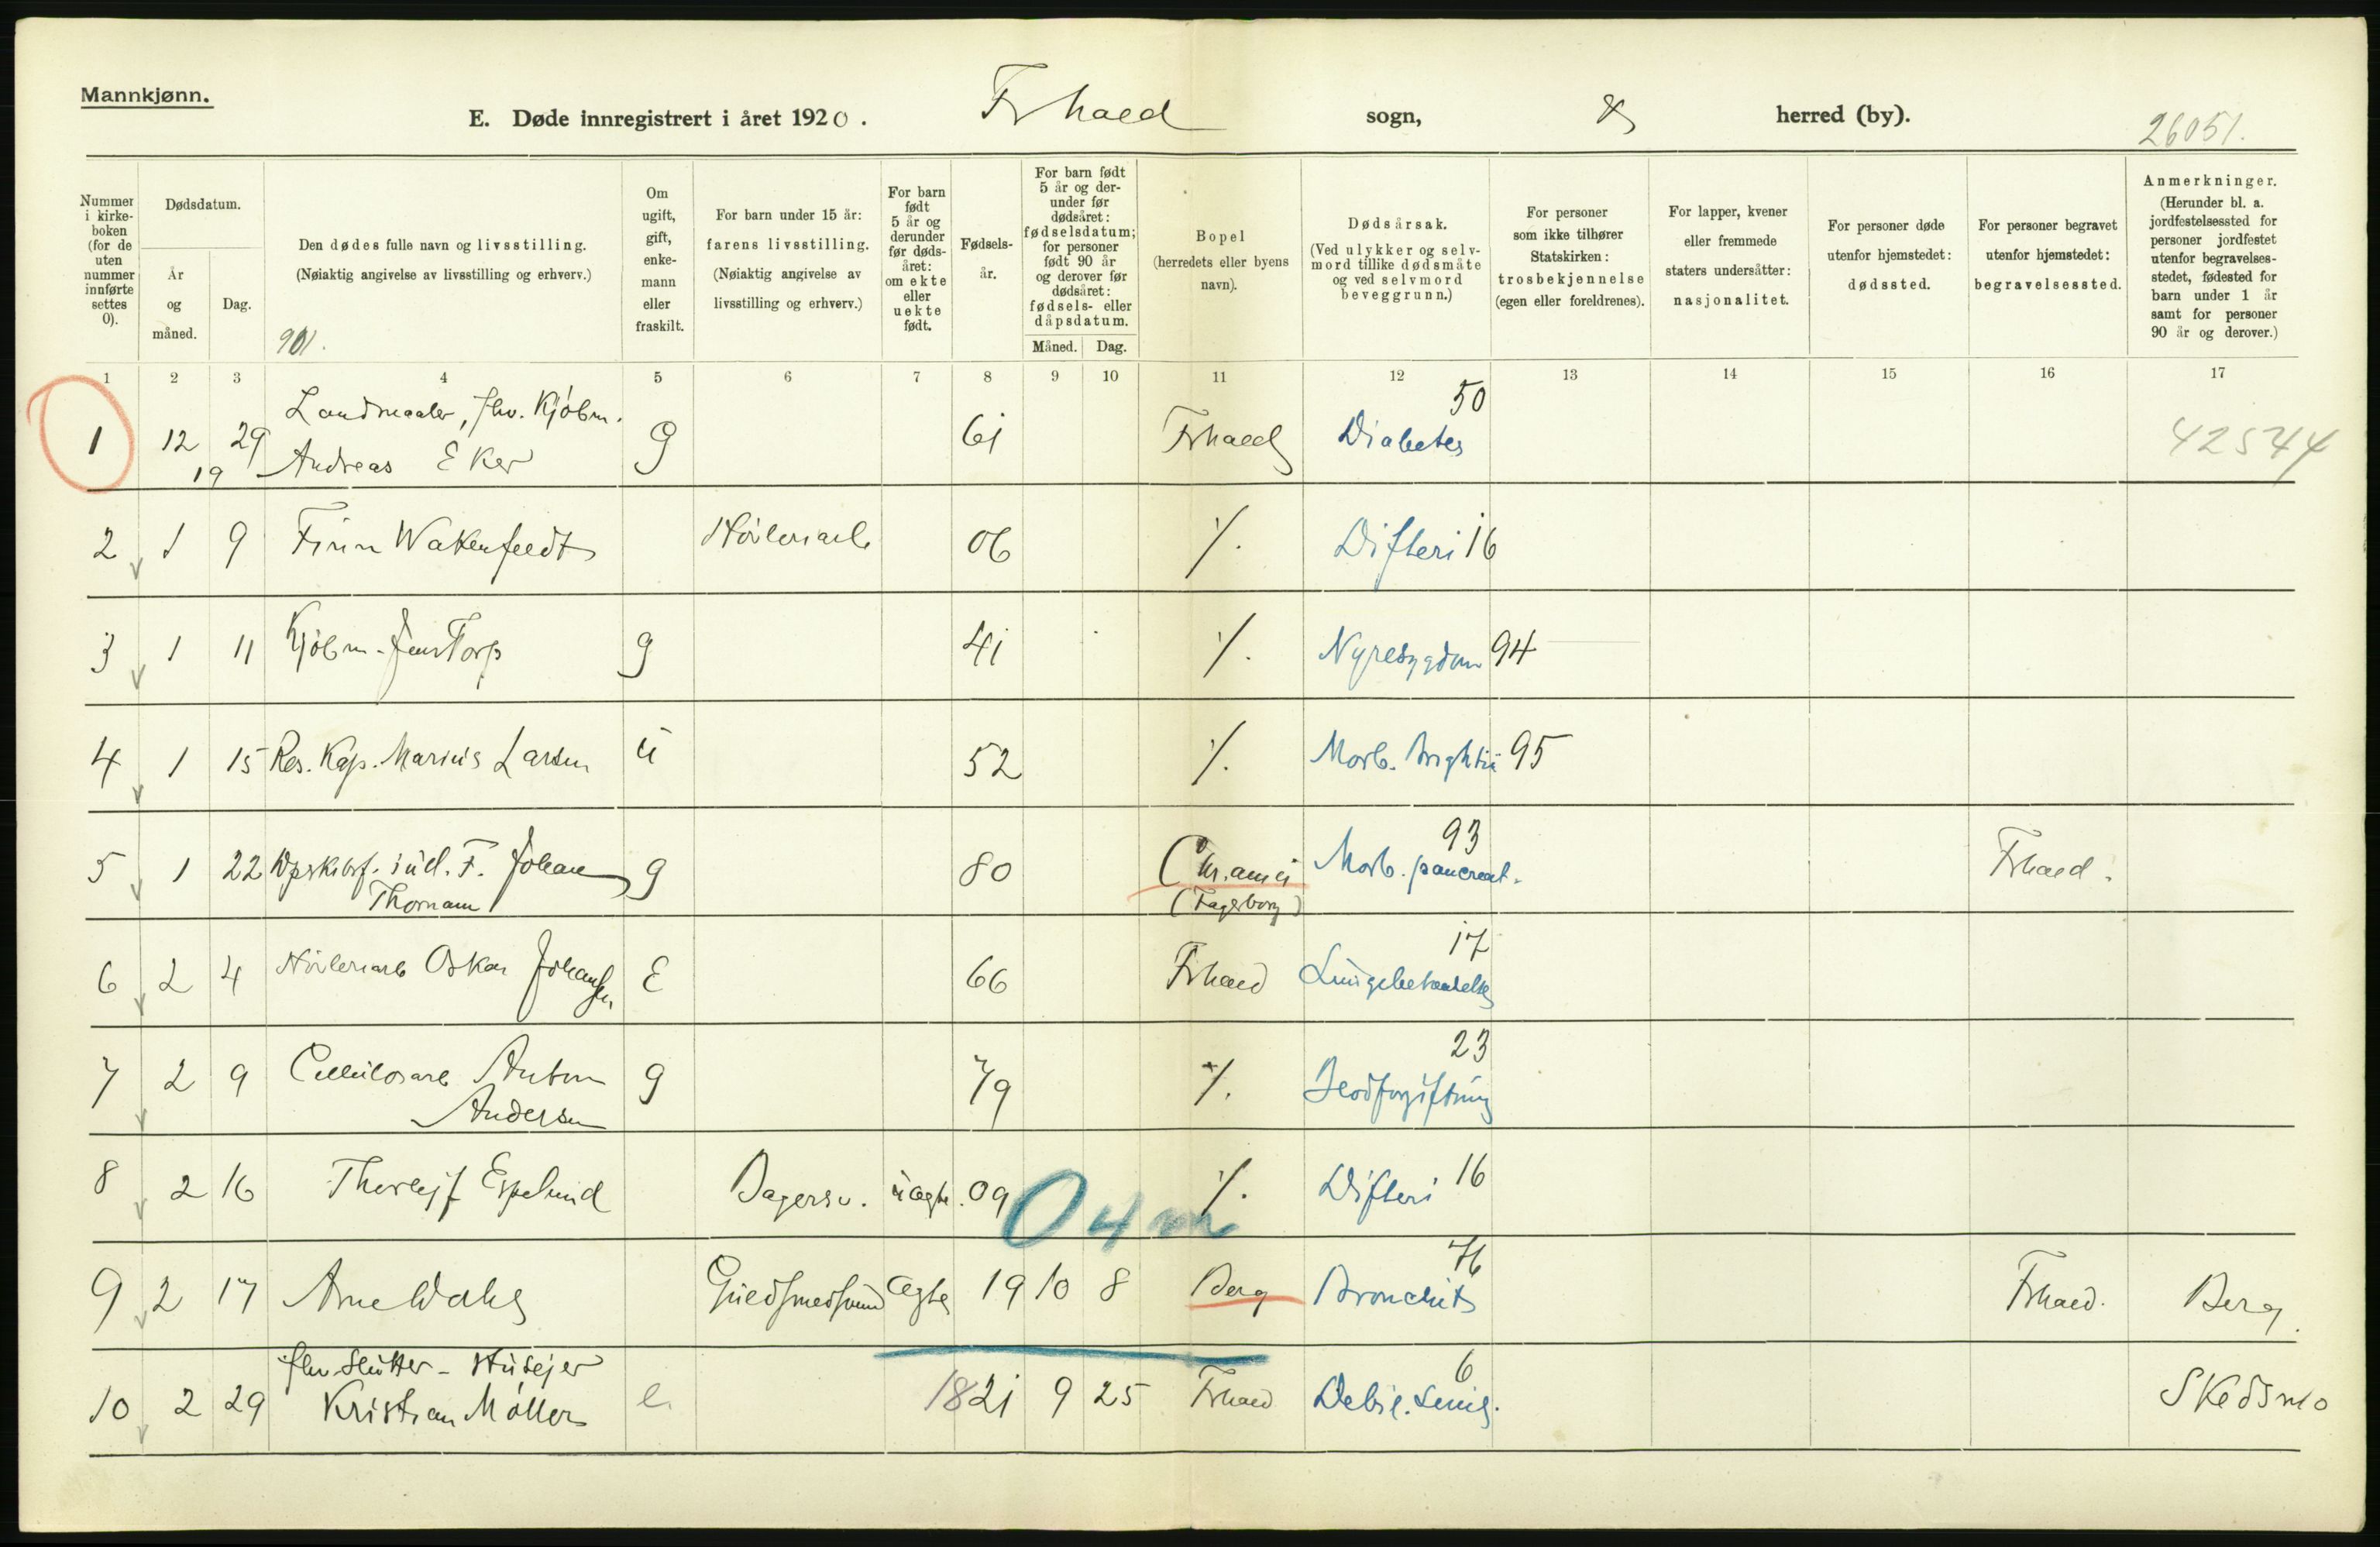 Mannkjønn.
E. Døde innregistrert i året 1920. Frhald sogn, herred (by). 26051.
Nummer i kirke-boken (for de uten nummer innførte settes 0).
Dødsdatum.
År og måned.
Dag.
Den dødes fulle navn og livsstilling.
(Nøiaktig angivelse av livsstilling og erhverv.)
901.
Om ugift, gift, enke-mann eller fraskilt.
For barn under 15 år: farens livsstilling.
(Nøiaktig angivelse av livsstilling og erhverv.)
For barn født 5 år og derunder før døds-året: om ekte eller uekte født.
Fødsels-år.
For barn født 5 år og der-under før dødsåret: fødselsdatum; for personer født 90 år og derover før dødsåret: fødsels- eller dåpsdatum.
Måned. Dag.
Bopel
(herredets eller byens navn).
Dødsårsak.
(Ved ulykker og selv-mord tillike dødsmåte og ved selvmord beveggrunn.)
For personer som ikke tilhører Statskirken: trosbekjennelse (egen eller foreldrenes).
For lapper, kvener eller fremmede staters undersåtter: nasjonalitet.
For personer døde utenfor hjemstedet: dødssted.
For personer begravet utenfor hjemstedet: begravelsessted.
Anmerkninger.
(Herunder bl. a. jordfestelsessted for personer jordfestet utenfor begravelses-stedet, fødested for barn under 1 år samt for personer 90 år og derover.)
1 2 3 4 5 6 7 8 9 10 11 12 13 14 15 16 17
Landmaaler, fhv. Kjøbm. 50
1 12 29 Andreas Eker g 61 Frhald Diabetes 42544
19
2 1 9 Finn Wakenfeldt Høvleriarb 06 ٪. Difteri 16
3 1 11 Kjøbm. Jens Torp g 41 ٪. Nyresygdom 94
4 1 15 Res. Kap. Marius Larsen u 52 ٪. Morb. Brightii 95
93
5 1 22 F. Johan g 80 Kr.ania Morb. pancreat. Frhald.
Thornam (Fagerborg)
17
6 2 4 Høvleriarb Oskar Johansen E 66 Frhald Lungebetændelse
23
7 2 9 Cellulosearb Anton g 79 ٪. Blodforgiftning
Andersen
8 2 16 Thorleif Espelund Bagersv. uægte. 09 ٪. Difteri 16
04 m
76
9 2 17 Arne Dahl Guldsmedsvend ægte 19 10 8 Berg Bronchit Frhald. Berg.
fhv. Slutter - Husejer 6
10 2 29 Kristian Møller e. 1821 9 25 Frhald Debil. senil. Skedsmo